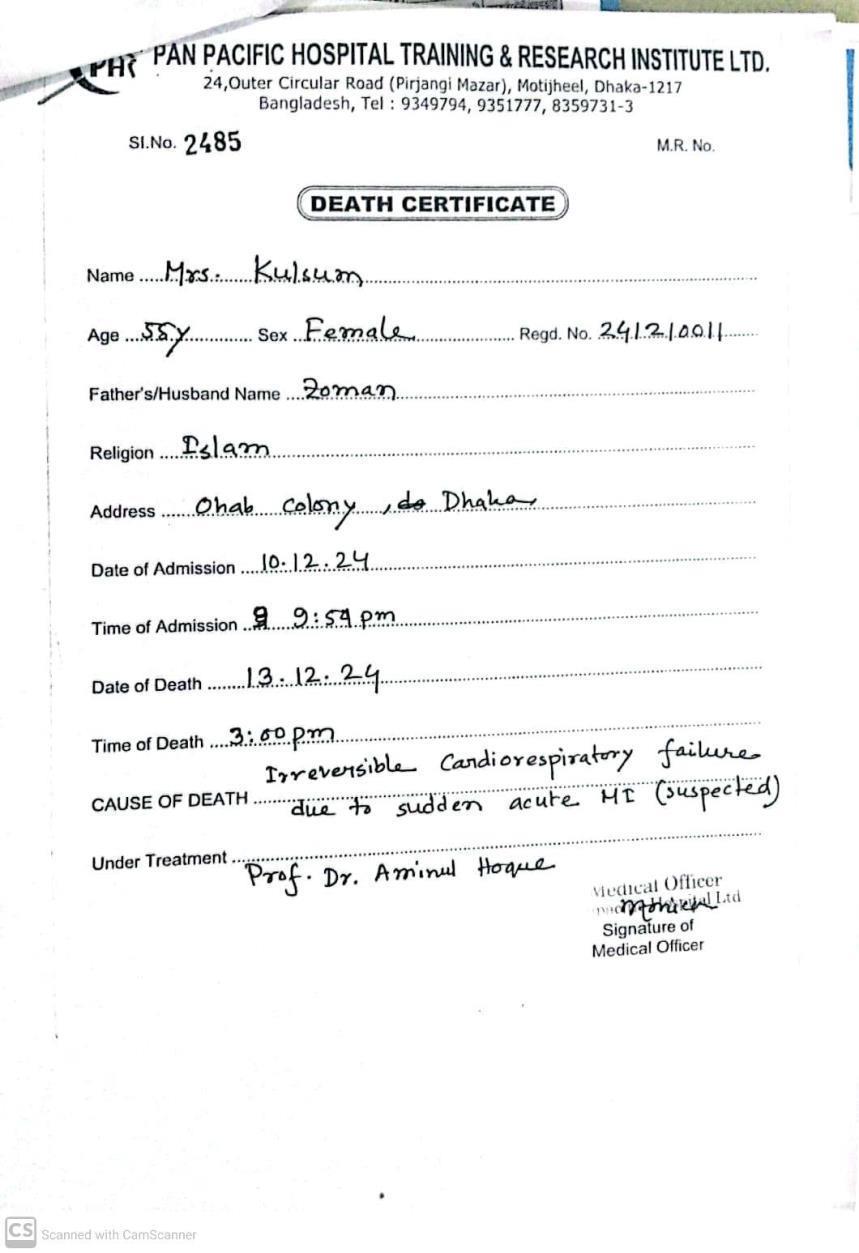 PHT PAN PACIFIC HOSPITAL TRAINING & RESEARCH INSTITUTE LTD.
24,Outer Circular Road (Pirjangi Mazar), Motijheel, Dhaka-1217
Bangladesh, Tel : 9349794, 9351777, 8359731-3
SI.No. 2485 M.R. No.
DEATH CERTIFICATE
Name .....Mrs. Kulsum
Age ...55y Sex ..Female Regd. No. 241210011
Father's/Husband Name ...Zoman
Religion ....Islam
Address ......Ohab Colony, Dhaka
Date of Admission ....10.12.24
Time of Admission .. 9:54 pm
Date of Death ........13.12.24
Time of Death ....3:00 pm
Irreversible Cardiorespiratory failure
CAUSE OF DEATH
due to sudden acute MI (suspected)
Under Treatment
Prof. Dr. Aminul Hoque
Medical Officer
Hospital Ltd
Signature of
Medical Officer
CS Scanned with CamScanner